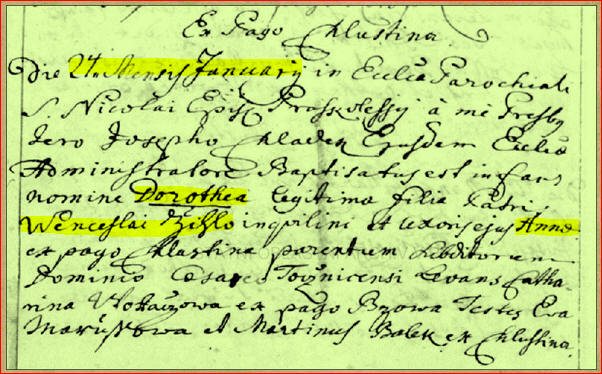 Ex Pago Chlustina
Die 24 Mensis January in Eccleã Parochiali
S. Nicolai Episc: â mé Presby
tero Josepho Chladek Ejusdem Eccleæ
Administratore Baptisatus est infans
nomine Dorothea legitima filia Patris
Wenceslai inquilini et Uxoris ejus Annæ
ex pago Chlustina parentum Subditorum
Dominio Cæsareo Levans Catha-
rina ex pago Bzowa Testes Eva
et Martinus Balek ex Chlustina